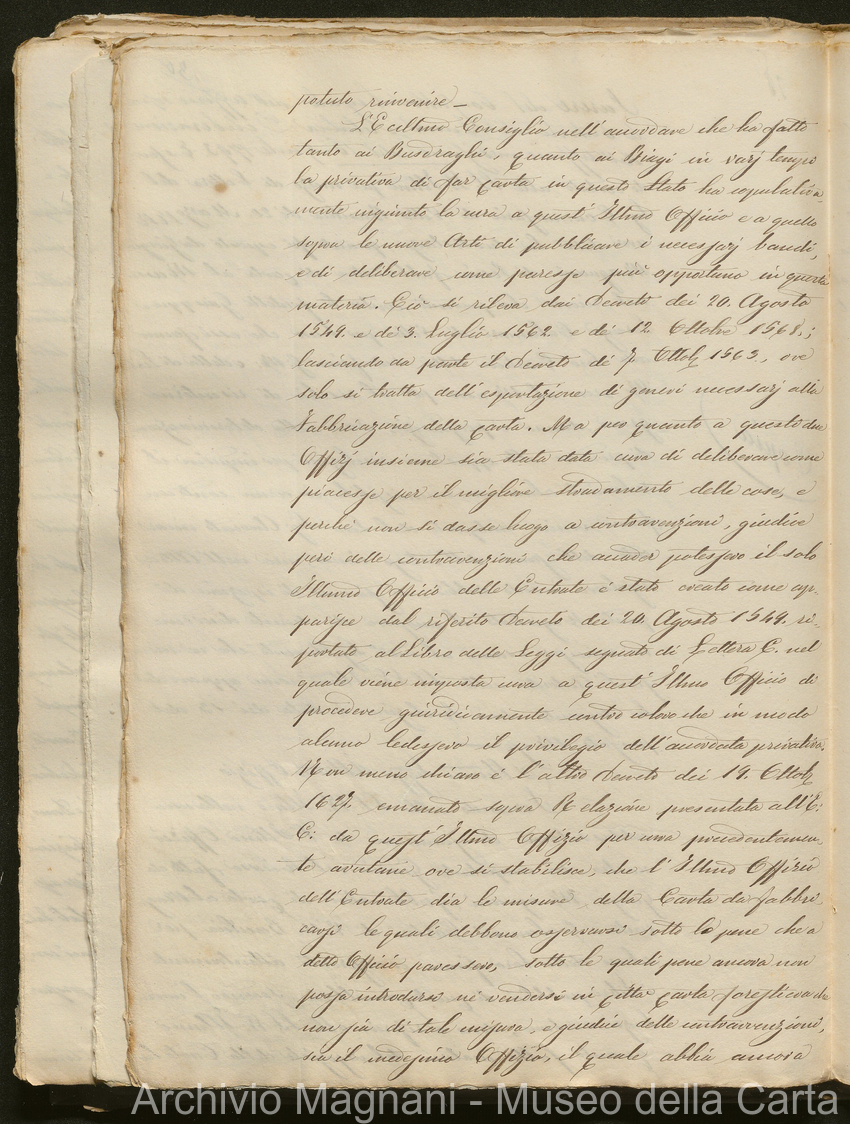 potuto rinvenire_
L'Eccltmo Consiglio nell'accordare che ha fatto
tanto ai Busdraghi, quanto ai Biagi in varj tempi
la privativa di far carta in questo Stato ha
mente ingiunto la cura a quest' Illmo Officio e a quello
sopra le nuove Arti di pubblicare i necessarj bandi,
e di deliberare come paresse più opportuno in questa
materia. Ciò si rileva dai Decreti dei 20. Agosto
1549. e de' 3. Luglio 1562. e dé 12 Ottobre 1568.;
lasciando da parte il Decreto dé 7. Ottob. 1563., ove
solo si tratta dell'esportazione di generi necessarj alla
Fabbricazione della carta. Ma per quanto a questi due
Offizj insieme sia stata data cura di deliberare come
piacesse per il migliore stradamento delle cose, e
perchè non si dasse luogo a contravenzioni, giudice
però delle contravenzioni che accader potessero il solo
Illmo Officio delle Entrate è stato creato come ap-
parisce dal riferito Decreto dei 20. Agosto 1549. ri-
portato al Libro delle Leggi segnato di Lettera C. nel
quale viene imposta cura a quest' Illmo Officio di
procedere giuridicamente contro coloro che in modo
alcuno ledessero il privilegio dell'accordata privativa.
Non meno chiaro è l'altro Decreto dei 19. Ottob.
1627. emanato sopra Relazione presentata all'E:
C: da quest' Illmo Offizio per cura precedentemen-
te avutane ove si stabilisce, che l'Illmo Offizio
dell'Entrate dia le misure della Carta da fabbri-
carsi le quali debbono osservarsi sotto le pene che a
detto Officio paressero, sotto le quali pene ancora non
possa introdursi nè vendersi in Città carta forestiera che
non sia di tale misura, e giudice delle contravvenzioni,
sia il medesimo Offizio, il quale abbia ancora
Archivio Magnani - Museo della Carta